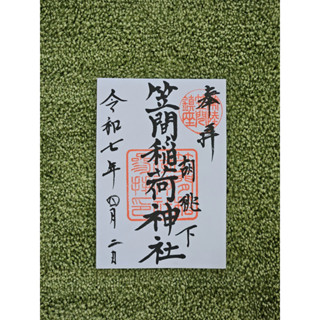 奉拝
胡桃下
笠間稲荷神社
令和七年四月二日